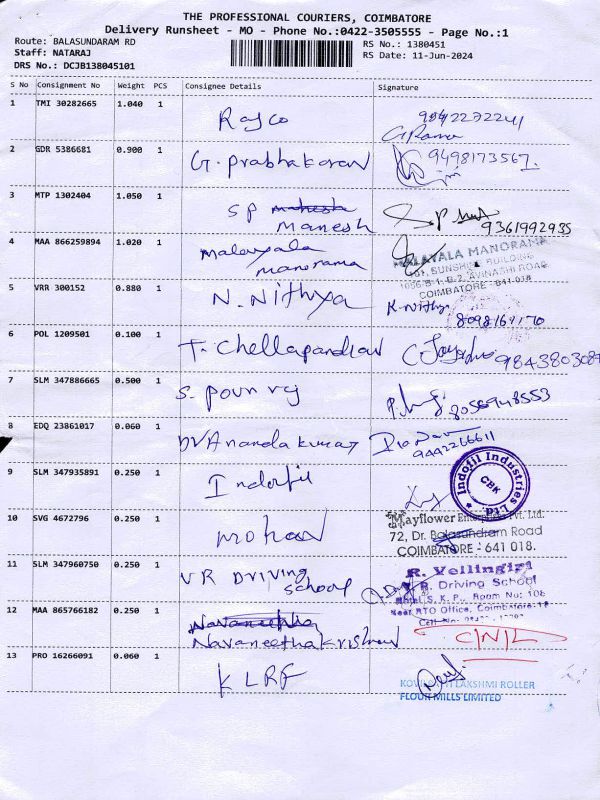 THE PROFESSIONAL COURIERS, COIMBATORE
Delivery Runsheet - MO - Phone No.:0422-3505555 - Page No.:1
Route: BALASUNDARAM RD
RS No.: 1380451
Staff: NATARAJ
RS Date: 11-Jun-2024
DRS No.: DCJB138045101
S No Consignment No Weight PCS Consignee Details Signature
1 TMI 30282665 1.040 1
Rajco
2 GDR 5386681 0.900 1
G. Prabhakaran 9498173567
3 MTP 1302404 1.050 1
S P
Manesh 9361992935
4 MAA 866259894 1.020 1
malayala
manorama
MALAYALA MANORAMA
COIMBATORE - 641 018
5 VRR 300152 0.880 1
N. Nithya K. Nithya
6 POL 1209501 0.100 1
T. Chellapandian
7 SLM 347886665 0.500 1
8056948553
8 EDQ 23861017 0.060 1
9442266611
9 SLM 347935891 0.250 1
Indofil
Indofil Industries Pvt Ltd
CBK
10 SVG 4672796 0.250 1
mohan
Mayflower Enterprises Pvt. Ltd.
72, Dr. Balasundram Road
COIMBATORE - 641 018.
11 SLM 347960750 0.250 1
VR Driving
School
R. Vellingiri
V.R. Driving School
Hotel S. K. P., Room No: 106
Near RTO Office, Coimbatore-18
12 MAA 865766182 0.250 1
Navaneetha
Navaneethakrishnan
13 PRO 16266091 0.060 1
KLRF
LAKSHMI ROLLER
FLOUR MILLS LIMITED